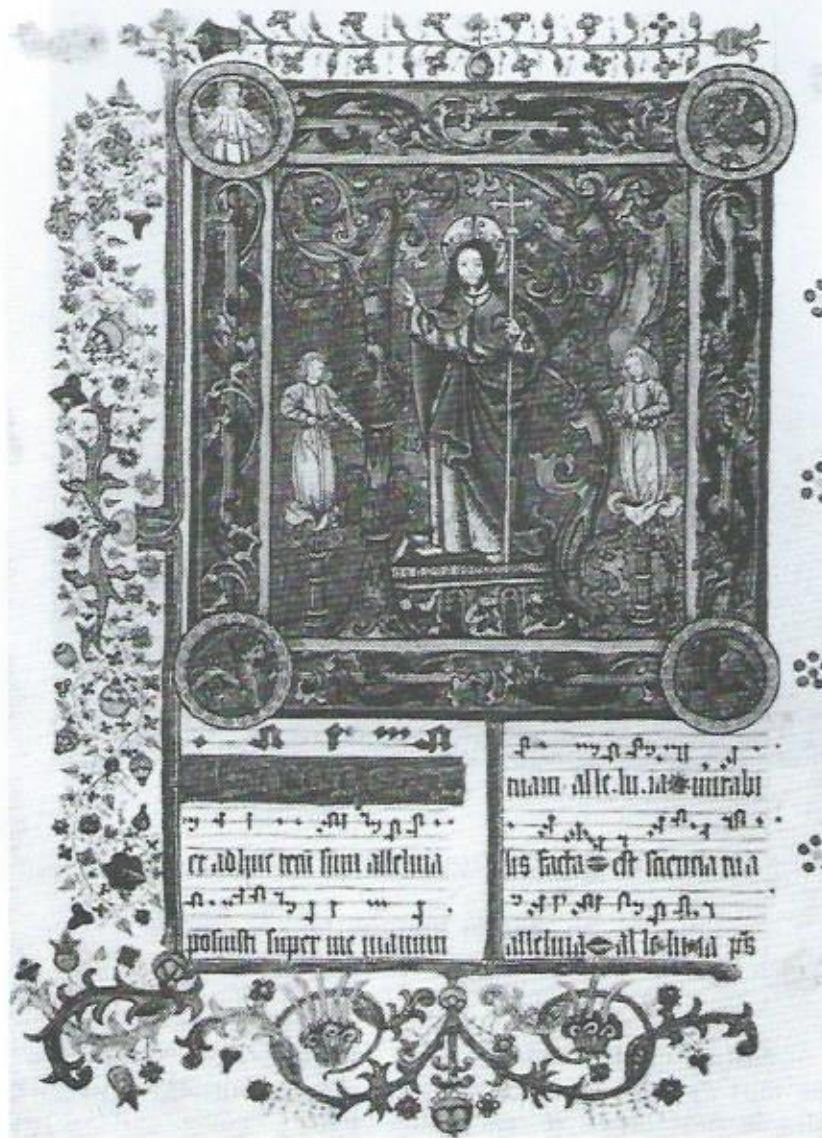 et adhuc tecū sum alleluia
posuisti super me manum
tuam alle.lu.ia mirabi
lis facta est sciencia tua
alleluia al le lu ia ps